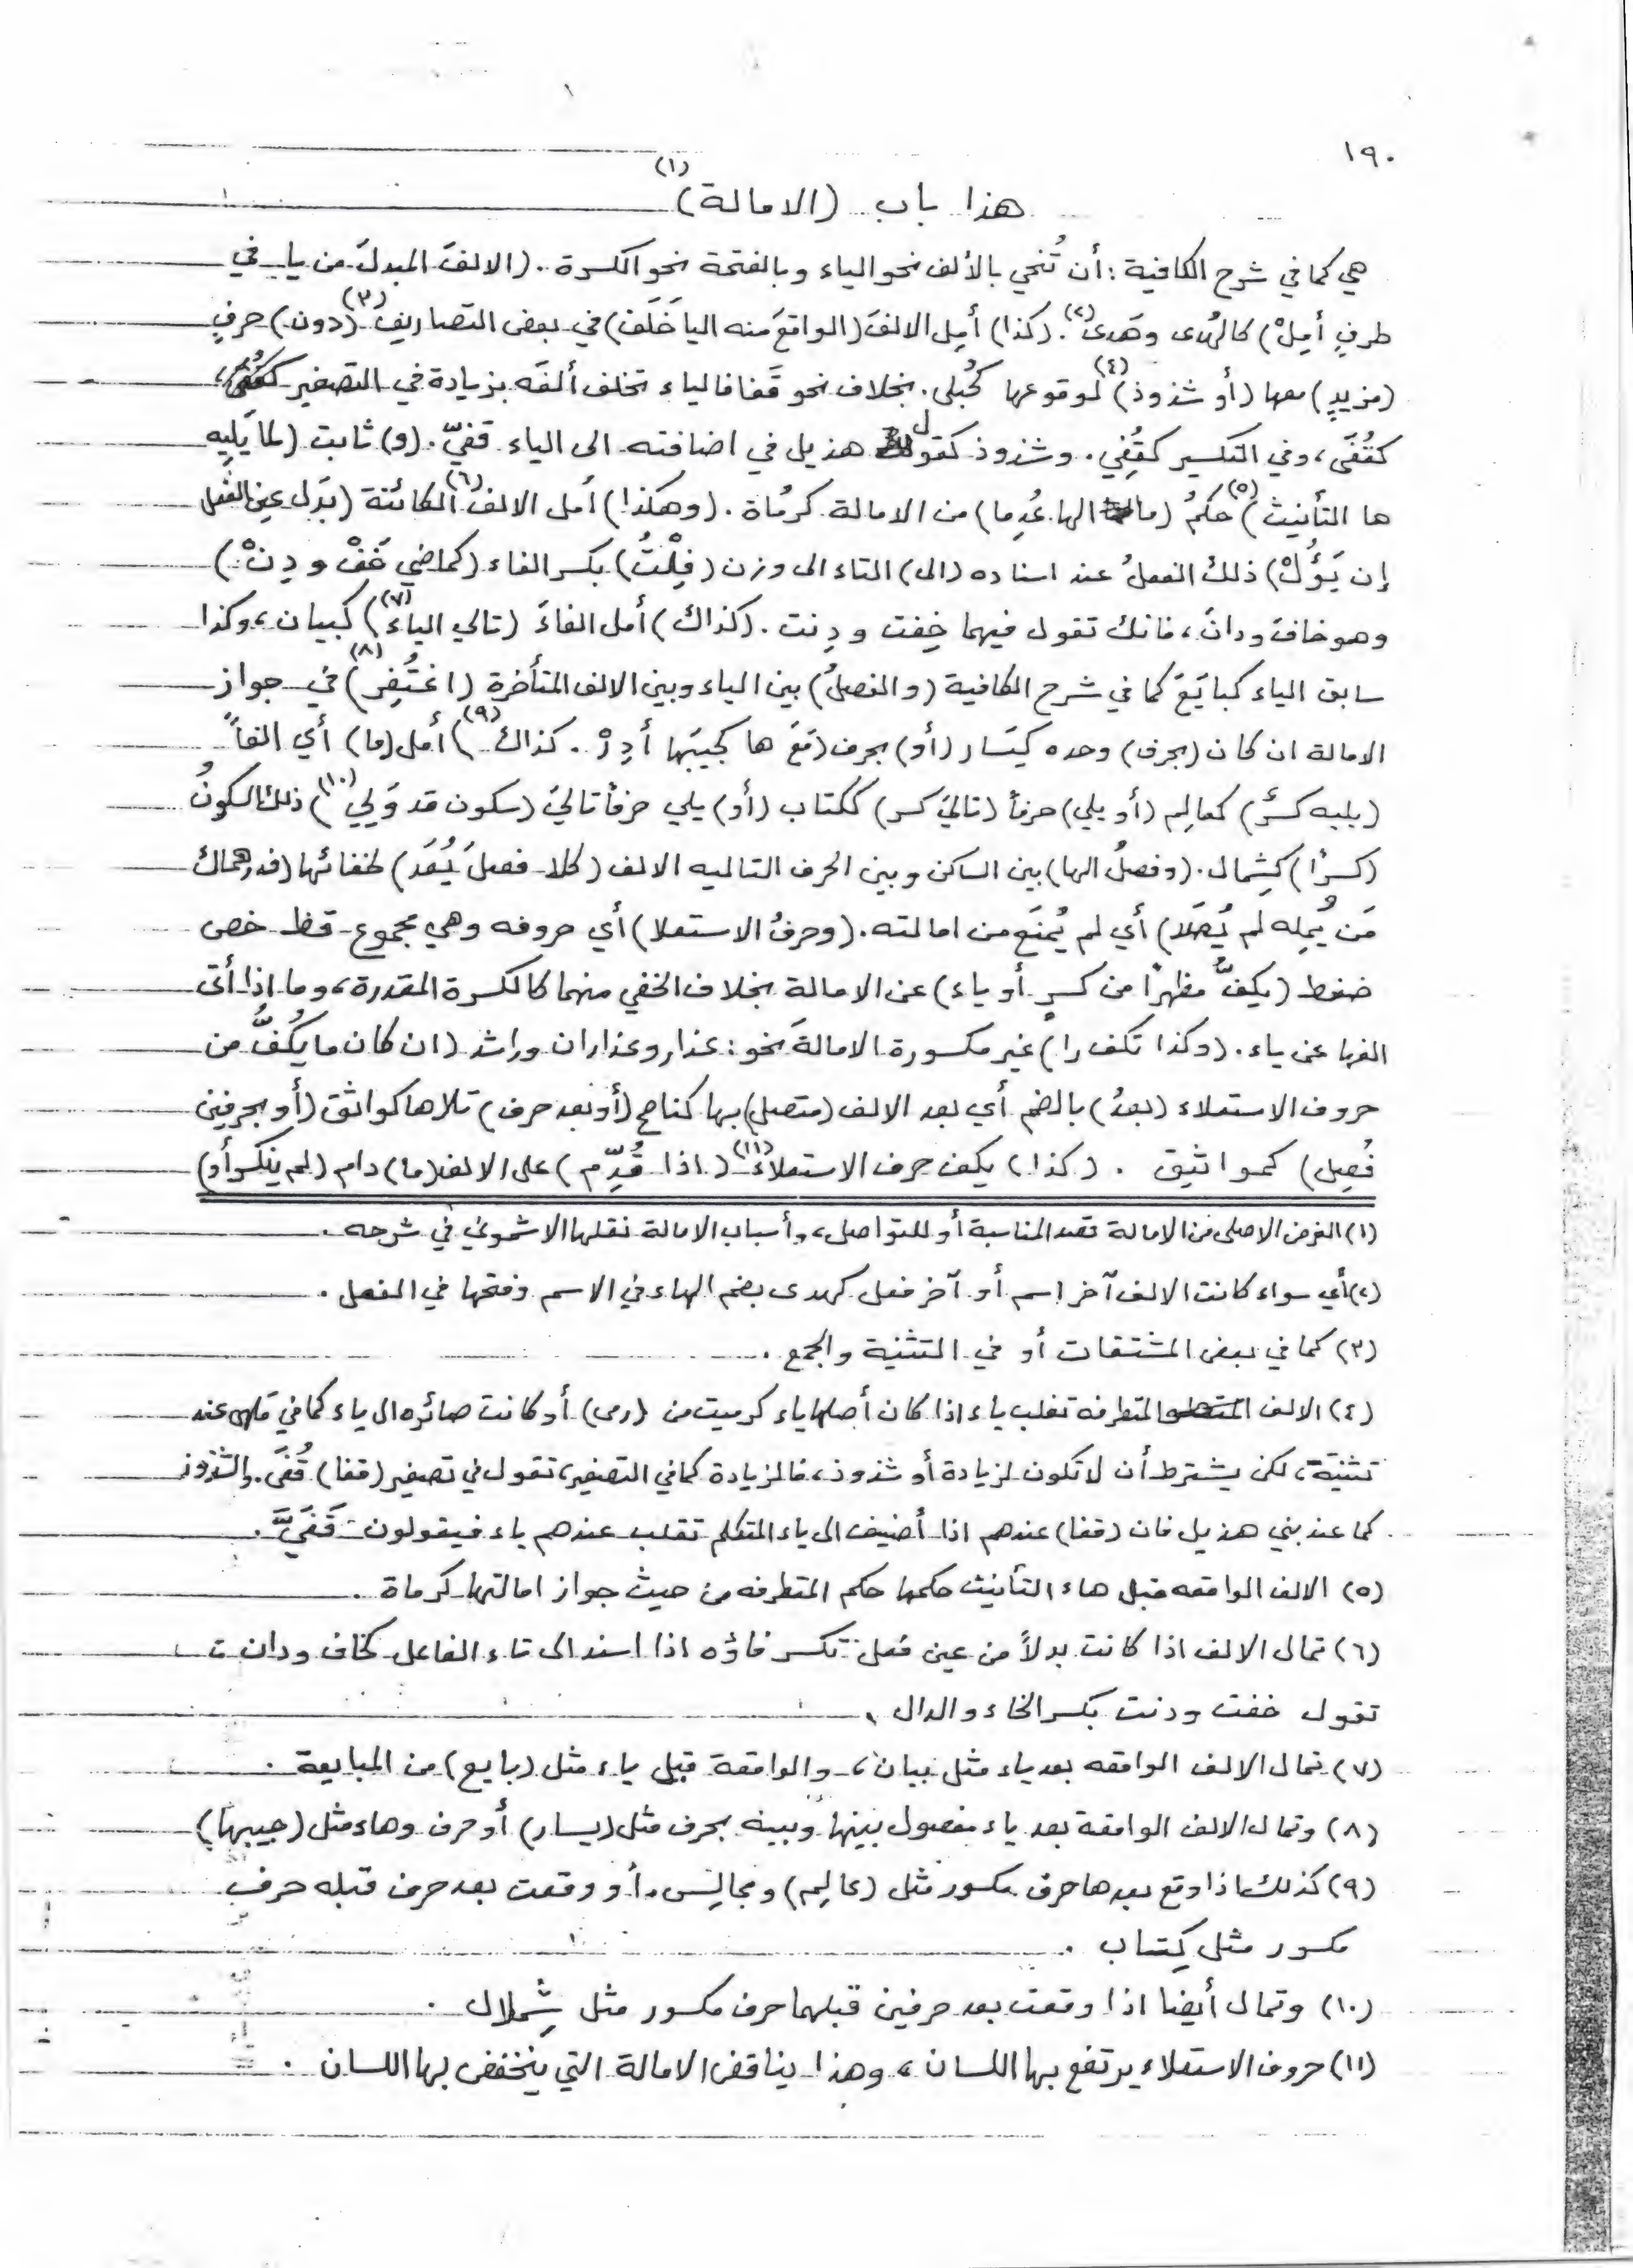 ١٩٠
هذا باب (الامالة) (١)
هي كما في شرح الكافية : أن تُنحي بالألف نحو الياء وبالفتحة نحو الكسرة . (الالفَ المبدلَ من يا في
طرفٍ أمِلْ) كالهُدى وهَدى (٢) . (كذا) أمِل الالفَ (الواقعَ منه اليا خَلَف) في بعض التصاريف (٣) (دون) حرفٍ
(مزيدٍ) معها (أو شذوذ) (٤) لوقوعها كحُبلى . بخلاف نحو قَفا فالياء تخلف ألفَه بزيادة في التصغير
كقُفَى ، وفي التكسير كقِفِي . وشذوذ كقول هذيل في اضافته الى الياء قفيّ . (و) ثابت (لما يَلِيه
ها التأنيث) (٥) حكمُ (ما الها عُدِما) من الامالة كرمُاة . (وهكذا) أمل الالف (٦) الكائنة (بدَل عين الفعل
إن يَؤُلْ) ذلك الفعلُ عند اسناده (الى) التاء الى وزن (فِلْتُ) بكسر الفاء (كماضي خَفْ و دِنْ)
وهو خاف ودانَ ، فانك تقول فيهما خِفت و دِنت . (كذاك) أمل الفاءَ (تالي الياء) (٧) كبيان ، وكذا
سابق الياء كبايَعَ كما في شرح الكافية (والفصلُ) بين الياء وبين الالف المتأخرة (اغتُفِر) (٨) في جواز
الامالة ان كان (بحرف) وحده كيَسَار (أو) بحرف (مَعَ ها كجيبَها أدِرْ . كذاك) (٩) أمل (ما) أي الفاً
(يليه كسرٌ) كعالِم (أو يلي) حرفاً (تاليَ كسر) ككتاب (أو) يلي حرفاً تاليَ (سكون قد وَلِي) (١٠) ذلك السكونُ
(كسرًا) كشِمال . (وفصلُ الها) بين الساكن وبين الحرف التاليه الالف (كلا فصلَ يُعَد) لخفائها (فدرهماك
مَن يُمِله لم يُصَد) أي لم يُمنَع من امالته . (وحرفُ الاستعلا) أي حروفه وهي مجموع قظ خص
ضغط (يكفُّ مظهرًا من كسرٍ أو ياء) عن الامالة بخلاف الخفي منهما كالكسرة المقدرة ، وما اذا أتى
الفها عن ياء . (وكذا تكف را) غير مكسورة الامالةَ نحو : عذار وعذاران وراشد (ان كان ما يكُفُّ من
حروف الاستعلاء (بعدُ) بالضم أي بعد الالف (متصل) بها كناصح (أو بعد حرف) تلاها كواثق (أو بحرفين
فُصِل) كمواثيق . (كذا) يكف حرف الاستعلاء (١١) (اذا قُدِّم) على الالف (ما) دام (لم ينكسر أو)
(١) الغرض الاصلي من الامالة تقصد المناسبة أو للتواصل ، وأسباب الامالة نقلها الاشموني في شرحه .
(٢) أي سواء كانت الالف آخر اسم أو آخر فعل كهدى بضم الهاء في الاسم وفتحها في الفعل .
(٣) كما في بعض المشتقات أو في التثنية والجمع .
(٤) الالف المتطرفه تقلب ياء اذا كان أصلها ياء كرميت من (رمى) أو كانت صائره الى ياء كما في ملهى عند
تثنيتة ، لكن يشترط أن لا تكون لزيادة أو شذوذ ، فالزيادة كما في التصغير ، تقول في تصغير (قفا) قُفَى . والشذوذ
كما عند بني هذيل فان (قفا) عندهم اذا أضيف الى ياء المتكلم تقلب عندهم ياء فيقولون قَفَيَّ .
(٥) الالف الواقعه قبل هاء التأنيث حكمها حكم المتطرفه من حيث جواز امالتها كرماة .
(٦) تمال الالف اذا كانت بدلاً من عين فعل تكسر فاؤه اذا اسند الى تاء الفاعل كخاف ودان ت
تقول خفت ودنت بكسر الخاء والدال .
(٧) تمال الالف الواقعه بعد ياء مثل بيان ، والواقعة قبل ياء مثل (بايع) من المبايعة .
(٨) وتمال الالف الواقعة بعد ياء مفصول بينها وبينه بحرف مثل (يسار) أو حرف وهاء مثل (جيبها)
(٩) كذلك اذا وقع بعدها حرف مكسور مثل (عالِم) ومجالِس . أو وقعت بعد حرف قبله حرف
مكسور مثل كِتاب .
(١٠) وتمال أيضا اذا وقعت بعد حرفين قبلهما حرف مكسور مثل شِملال .
(١١) حروف الاستعلاء يرتفع بها اللسان ، وهذا يناقض الامالة التي ينخفض بها اللسان .